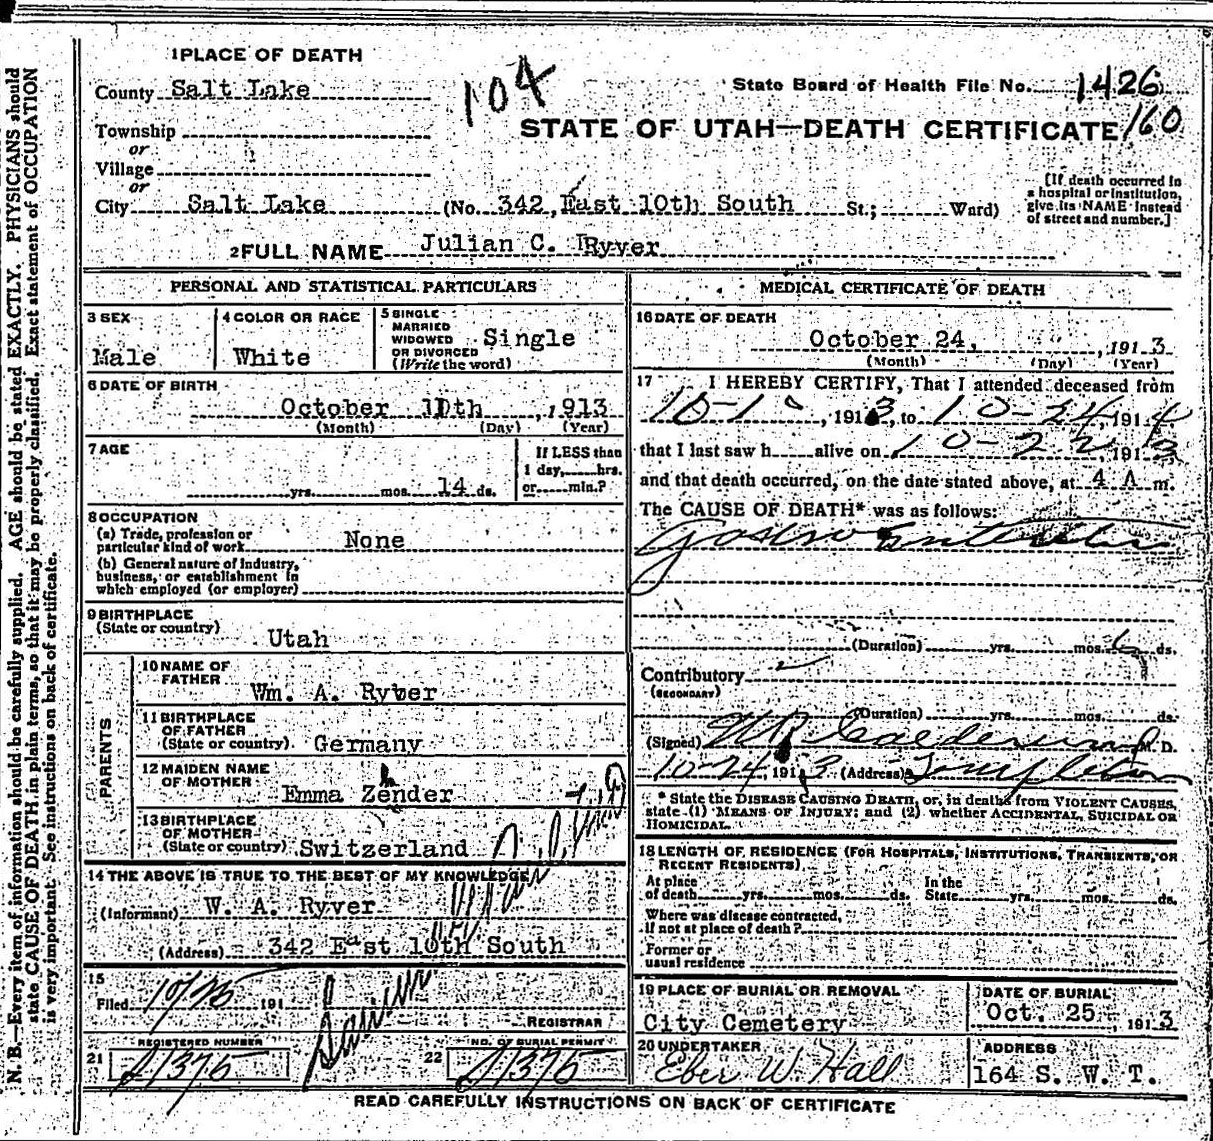 1 PLACE OF DEATH
County Salt Lake
104
State Board of Health File No. 1426
STATE OF UTAH—DEATH CERTIFICATE 160
Township
or
Village
or
City Salt Lake (No. 342, East 10th South St.; Ward)
[If death occurred in a hospital or institution, give its NAME instead of street and number.]
2 FULL NAME Julian C. Ryver
PERSONAL AND STATISTICAL PARTICULARS
3 SEX
Male
4 COLOR OR RACE
White
5 SINGLE
MARRIED
WIDOWED
OR DIVORCED
(Write the word)
Single
6 DATE OF BIRTH
October 10th, 1913
(Month) (Day) (Year)
7 AGE
yrs. mos. 14 ds.
If LESS than
1 day, hrs.
or min.?
8 OCCUPATION
(a) Trade, profession or
particular kind of work None
(b) General nature of industry,
business, or establishment in
which employed (or employer)
9 BIRTHPLACE
(State or country)
Utah
PARENTS
10 NAME OF
FATHER
Wm. A. Ryver
11 BIRTHPLACE
OF FATHER
(State or country) Germany
12 MAIDEN NAME
OF MOTHER
Emma Zehder
13 BIRTHPLACE
OF MOTHER
(State or country) Switzerland
14 THE ABOVE IS TRUE TO THE BEST OF MY KNOWLEDGE
(Informant) W. A. Ryver
(Address) 342 East 10th South
15
Filed 10/25 191
REGISTRAR
REGISTERED NUMBER
21 J1375
NO. OF BURIAL PERMIT
22 J1375
MEDICAL CERTIFICATE OF DEATH
16 DATE OF DEATH
October 24, 1913
(Month) (Day) (Year)
17 I HEREBY CERTIFY, That I attended deceased from
10-10, 1913, to 10-24, 1914
that I last saw h alive on 10-22, 1913,
and that death occurred, on the date stated above, at 4 A m.
The CAUSE OF DEATH* was as follows:
Gastro Enteritis
(Duration) yrs. mos. 6 ds.
Contributory
(SECONDARY)
(Duration) yrs. mos. ds.
(Signed) M. D.
10-24, 1913 (Address) Templeton
* State the DISEASE CAUSING DEATH, or, in deaths from VIOLENT CAUSES,
state (1) MEANS OF INJURY; and (2) whether ACCIDENTAL, SUICIDAL OR
HOMICIDAL.
18 LENGTH OF RESIDENCE (FOR HOSPITALS, INSTITUTIONS, TRANSIENTS, OR
RECENT RESIDENTS).
At place
of death yrs. mos. ds.
In the
State yrs. mos. ds.
Where was disease contracted,
if not at place of death?
Former or
usual residence
19 PLACE OF BURIAL OR REMOVAL
City Cemetery
DATE OF BURIAL
Oct. 25, 1913
20 UNDERTAKER
Eber W. Hall
ADDRESS
164 S. W. T.
READ CAREFULLY INSTRUCTIONS ON BACK OF CERTIFICATE
N. B.—Every item of information should be carefully supplied. AGE should be stated EXACTLY. PHYSICIANS should
state CAUSE OF DEATH in plain terms, so that it may be properly classified. Exact statement of OCCUPATION
is very important. See instructions on back of certificate.